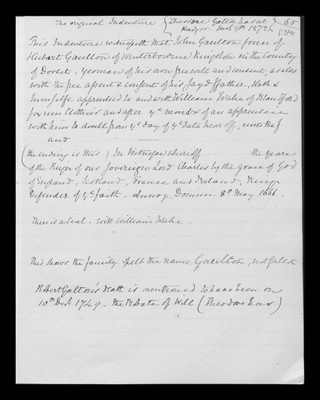 The original Indenture
This Indenture witnesseth that John Gaulton sonn of
Hubart Gaulton of Winterbourne Kingston in the County
of Dorset, yeoman of his own free will and consent, as also
with the free assent & consent of his say'd ffather, Hath &
himselfe apprenticed to and with William Wake of Blandford
for um Clothier and after ye manner of an apprentice
with him to dwell from ye day of ye date hereof, untill
and
(the ending is this) In Witness whereoff the yeare
of the Reign of our Sovereign Lord Charles by the grace of God
of England, Scotland, France and Ireland, King
Defender of ye faith. Annoq Domini 8th May 1666.
There is a Seal - with William Wake.
This shows the family spelt the name Gaulton, not Galton
Robert Galton's death is mentioned to have been on
10th Decr 1749 - the Probate of Will (Theodore